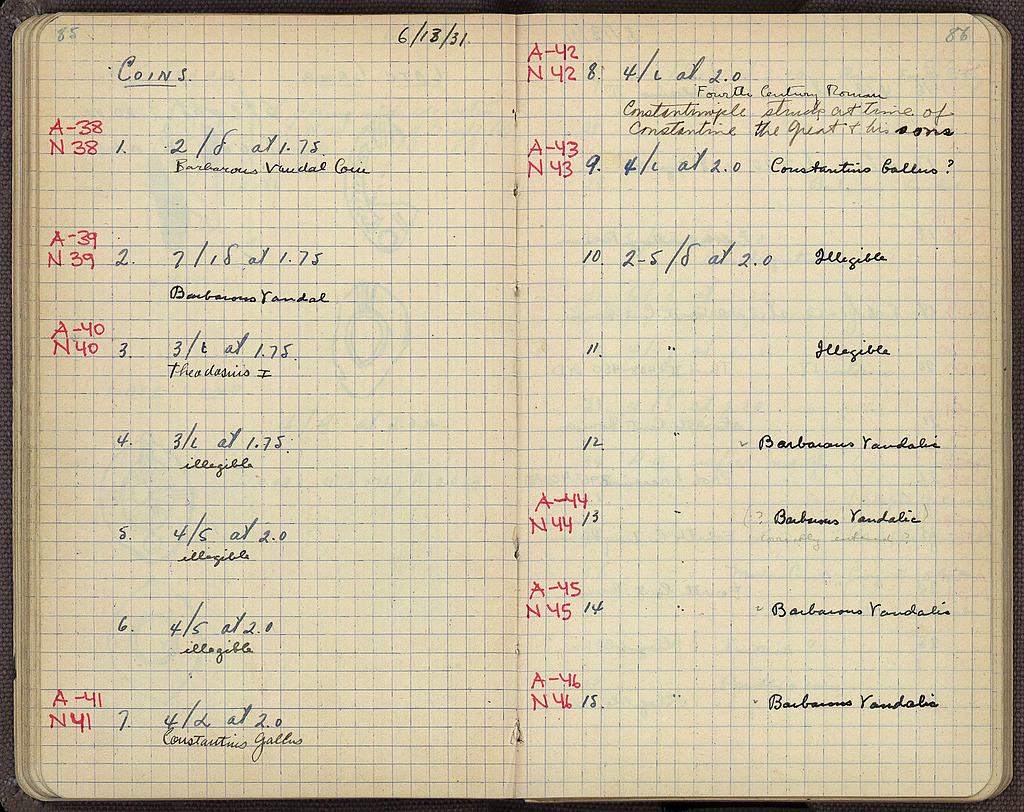 85
6/13/31.
COINS.
A-38
N 38 1. 2/8 at 1.75.
Barbarous Vandal Coin
A-39
N 39 2. 7/18 at 1.75
Barbarous Vandal
A-40
N 40 3. 3/L at 1.75.
Theodosius I
4. 3/L at 1.75.
illegible
5. 4/5 at 2.0
illegible
6. 4/5 at 2.0
illegible
A-41
N 41 7. 4/2 at 2.0
Constantius Gallus
86
A-42
N 42 8. 4/L at 2.0
Fourth Century Roman
Constantinople struck at time of
Constantine the Great & his sons
A-43
N 43 9. 4/L at 2.0 Constantius Gallus?
10. 2-5/8 at 2.0 Illegible
11. " Illegible
12 " Barbarous Vandalic
A-44
N 44 13 " (? Barbarous Vandalic)
correctly entered?
A-45
N 45 14 " Barbarous Vandalic
A-46
N 46 15. " Barbarous Vandalic